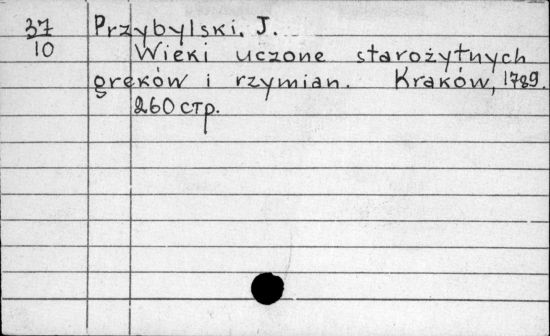 37 Przybylski, J.
10 Wieki uczone starożytnych
greków i rzymian. Kraków, 1789.
260 стр.